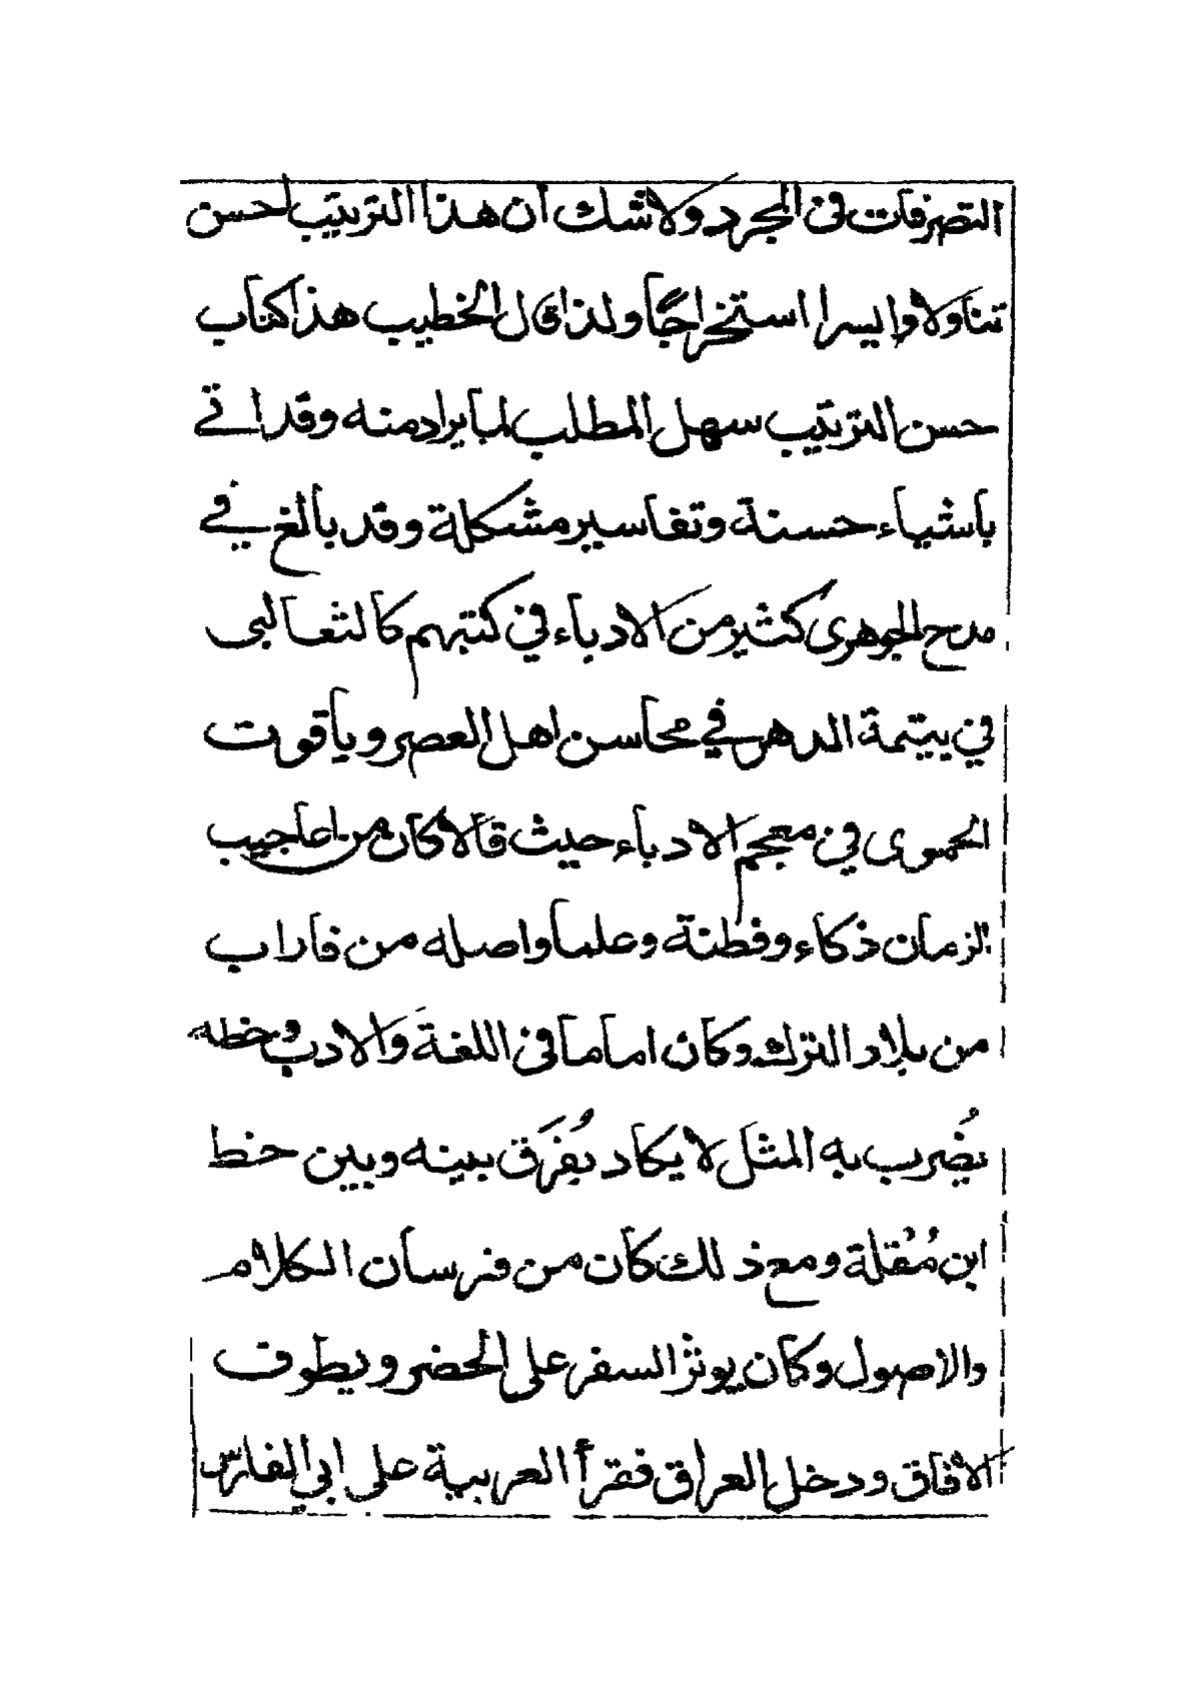 التصرفات في المجرد ولا شك أن هذا الترتيب احسن
تناولا وايسرا استخراجًا ولذا قال الخطيب هذا كتاب
حسن الترتيب سهل المطلب لما يراد منه وقد اتى
باشياء حسنة وتفاسير مشكلة وقد بالغ في
مدح الجوهري كثير من الادباء في كتبهم كالثعالبي
في يتيمة الدهر في محاسن اهل العصر وياقوت
الحموى في معجم الادباء حيث قالا كان من اعاجيب
الزمان ذكاء وفطنة وعلما واصله من فاراب
من بلاد الترك وكان اماما في اللغة والادب وخطه
يُضرب به المثل لا يكاد يُفرَق بينه وبين خط
ابن مُقلة ومع ذلك كان من فرسان الكلام
والاصول وكان يوثر السفر على الحضر ويطوف
الافاق ودخل العراق فقرأ العربية على ابي الفارس